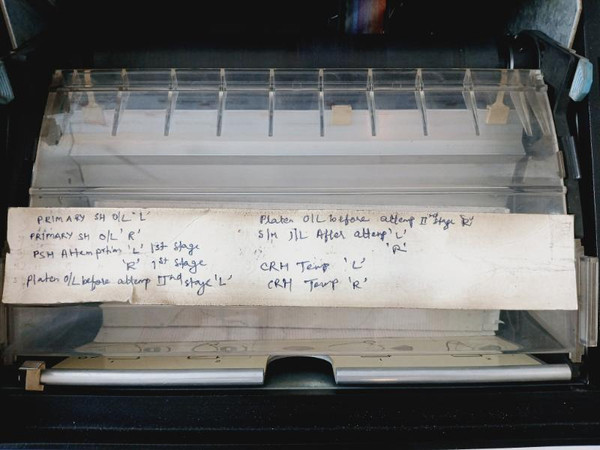 PRIMARY SH O/L 'L'
PRIMARY SH O/L 'R'
PSH Attemption 'L' 1st stage
'R' 1st stage
Platen O/L before attemp IInd stage 'L'
Platen O/L before attemp IInd stage 'R'
S/H I/L After attemp 'L'
'R'
CRH Temp 'L'
CRH Temp 'R'